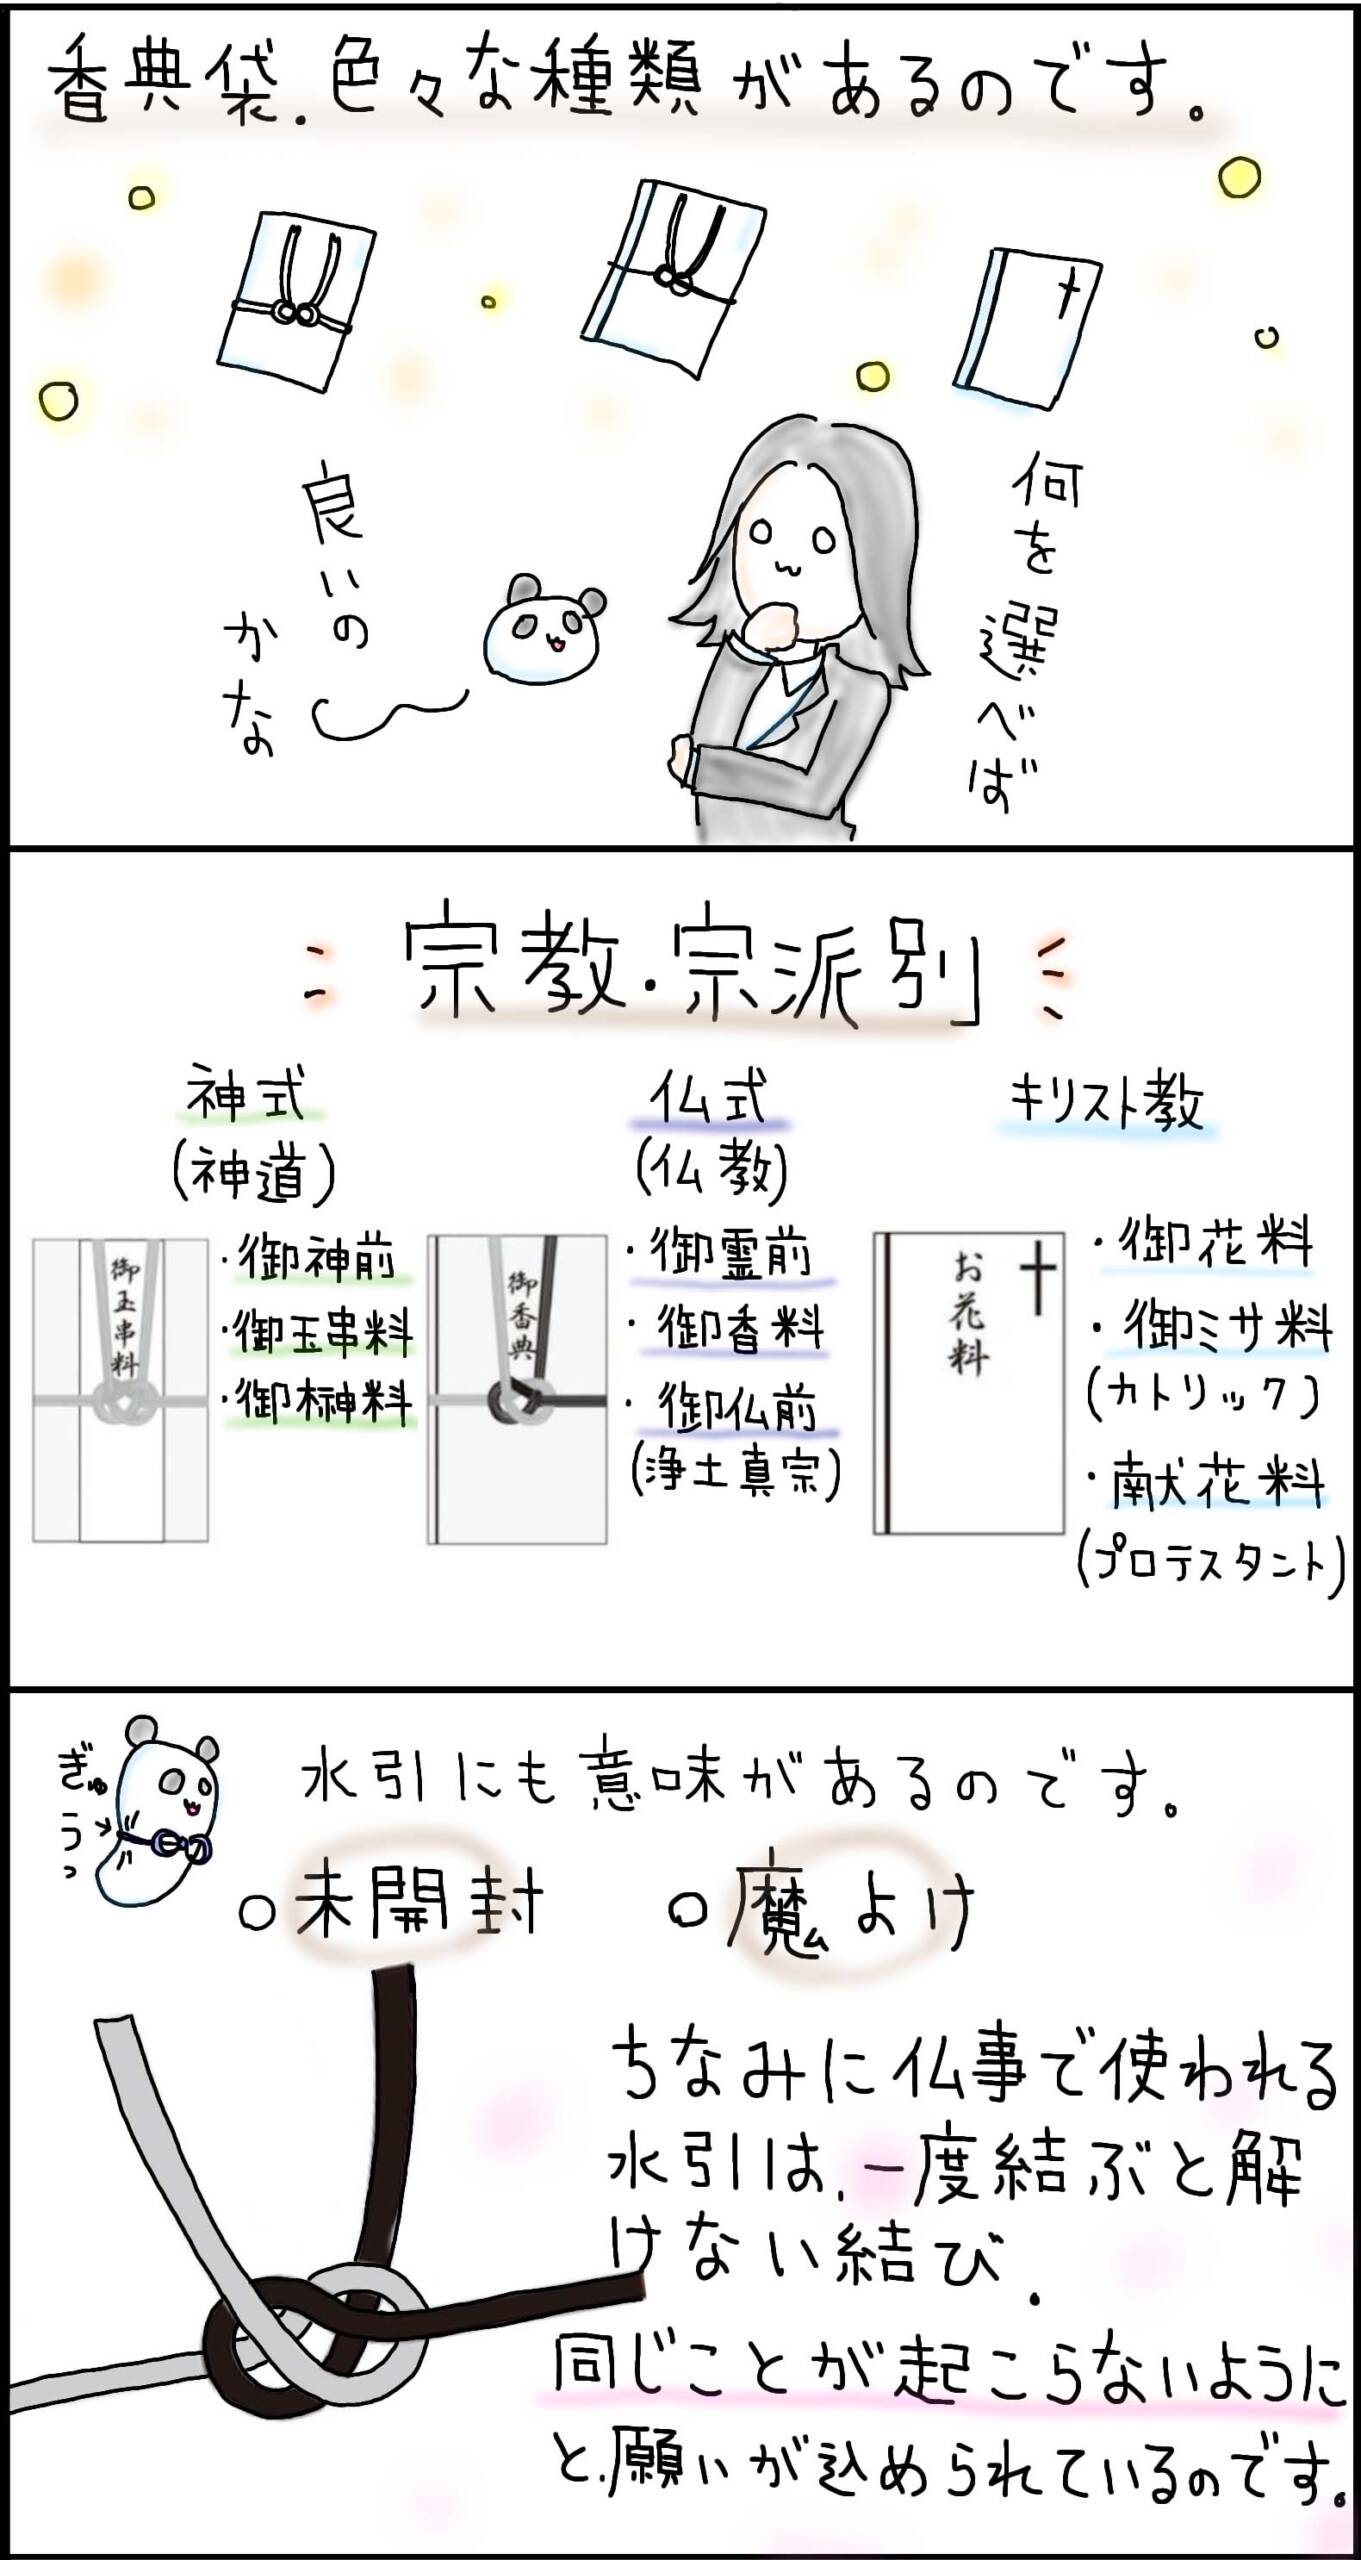 香典袋.色々な種類があるのです。
何を選べば
良いの
かな
宗教・宗派別
神式
(神道)
御玉串料
・御神前
・御玉串料
・御榊料
仏式
(仏教)
御香典
・御霊前
・御香料
・御仏前
(浄土真宗)
キリスト教
お花料
・御花料
・御ミサ料
(カトリック)
・献花料
(プロテスタント)
ぎゅ
うっ
水引にも意味があるのです。
○未開封
○魔よけ
ちなみに仏事で使われる
水引は、一度結ぶと解
けない結び.
同じことが起こらないように
と、願いが込められているのです。